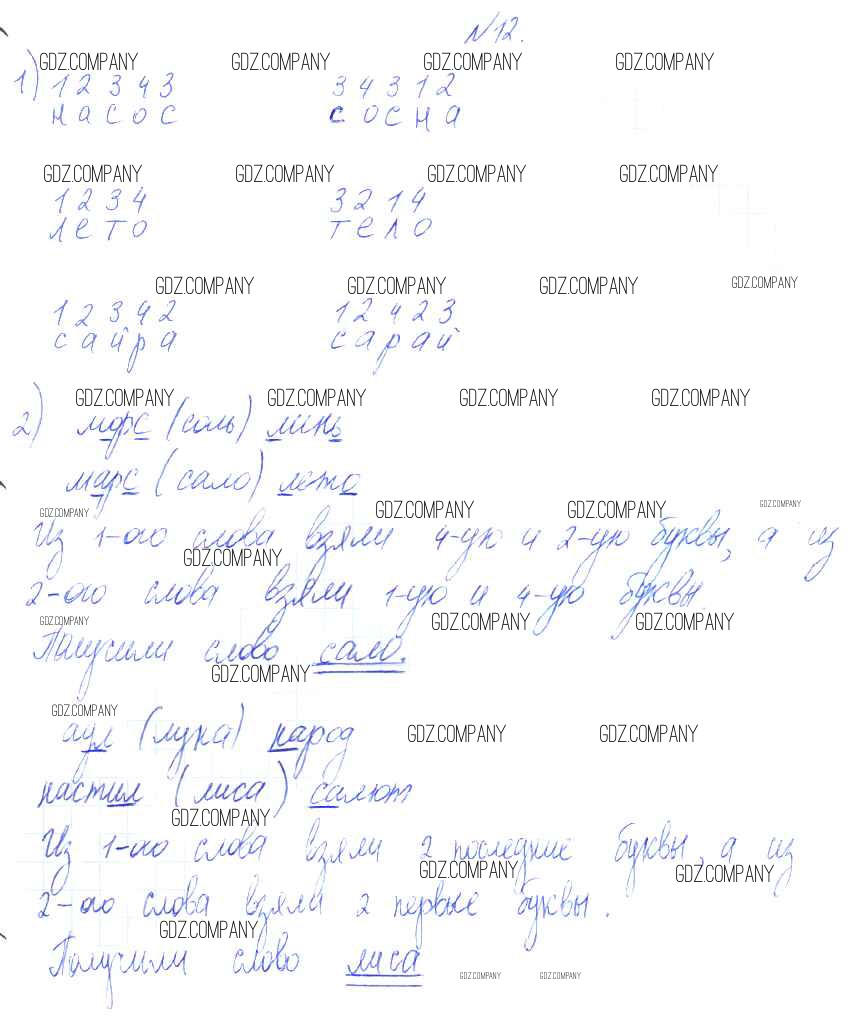 №12.
GDZ.COMPANY GDZ.COMPANY GDZ.COMPANY GDZ.COMPANY
1) 1 2 3 4 3 3 4 3 1 2
н а с о с с о с н а
GDZ.COMPANY GDZ.COMPANY GDZ.COMPANY GDZ.COMPANY
1 2 3 4 3 2 1 4
л е т о т е л о
GDZ.COMPANY GDZ.COMPANY GDZ.COMPANY GDZ.COMPANY
1 2 3 4 2 1 2 4 2 3
с а й р а с а р а й
GDZ.COMPANY GDZ.COMPANY GDZ.COMPANY GDZ.COMPANY
2) морс (соль) линь
марс (сало) лето
GDZ.COMPANY GDZ.COMPANY GDZ.COMPANY GDZ.COMPANY
Из 1-ого слова взяли 4-ую и 2-ую буквы, а из
GDZ.COMPANY
2-ого слова взяли 1-ую и 4-ую буквы.
GDZ.COMPANY GDZ.COMPANY GDZ.COMPANY
Получили слово сало.
GDZ.COMPANY
GDZ.COMPANY GDZ.COMPANY GDZ.COMPANY
аул (лука) народ
настил (лиса) салют
GDZ.COMPANY
Из 1-ого слова взяли 2 последние буквы, а из
GDZ.COMPANY GDZ.COMPANY
2-ого слова взяли 2 первые буквы.
GDZ.COMPANY
Получили слово лиса
GDZ.COMPANY GDZ.COMPANY